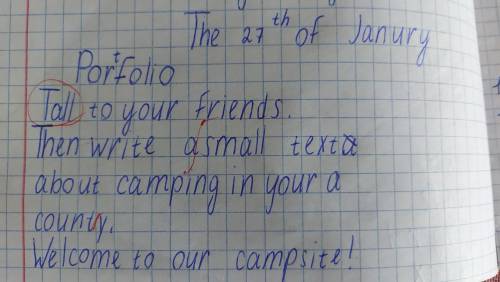 The 27th of Janury
Portfolio
Tall to your friends.
Then write a small text a
about camping in your a
county.
Welcome to our campsite!